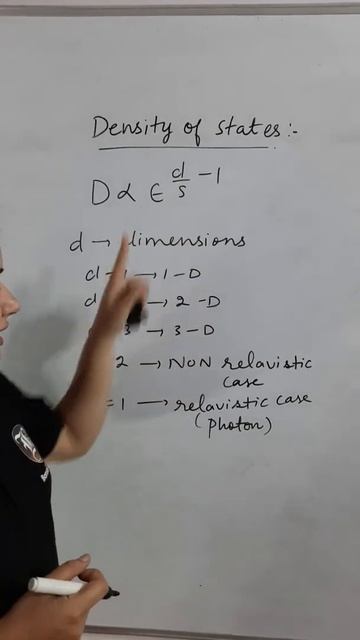 Density of states :-
D ∝ ε^(d/s - 1)
d → dimensions
d 1 → 1-D
d → 2-D
3 → 3-D
2 → NON relavistic
case
= 1 → relavistic case
(photon)